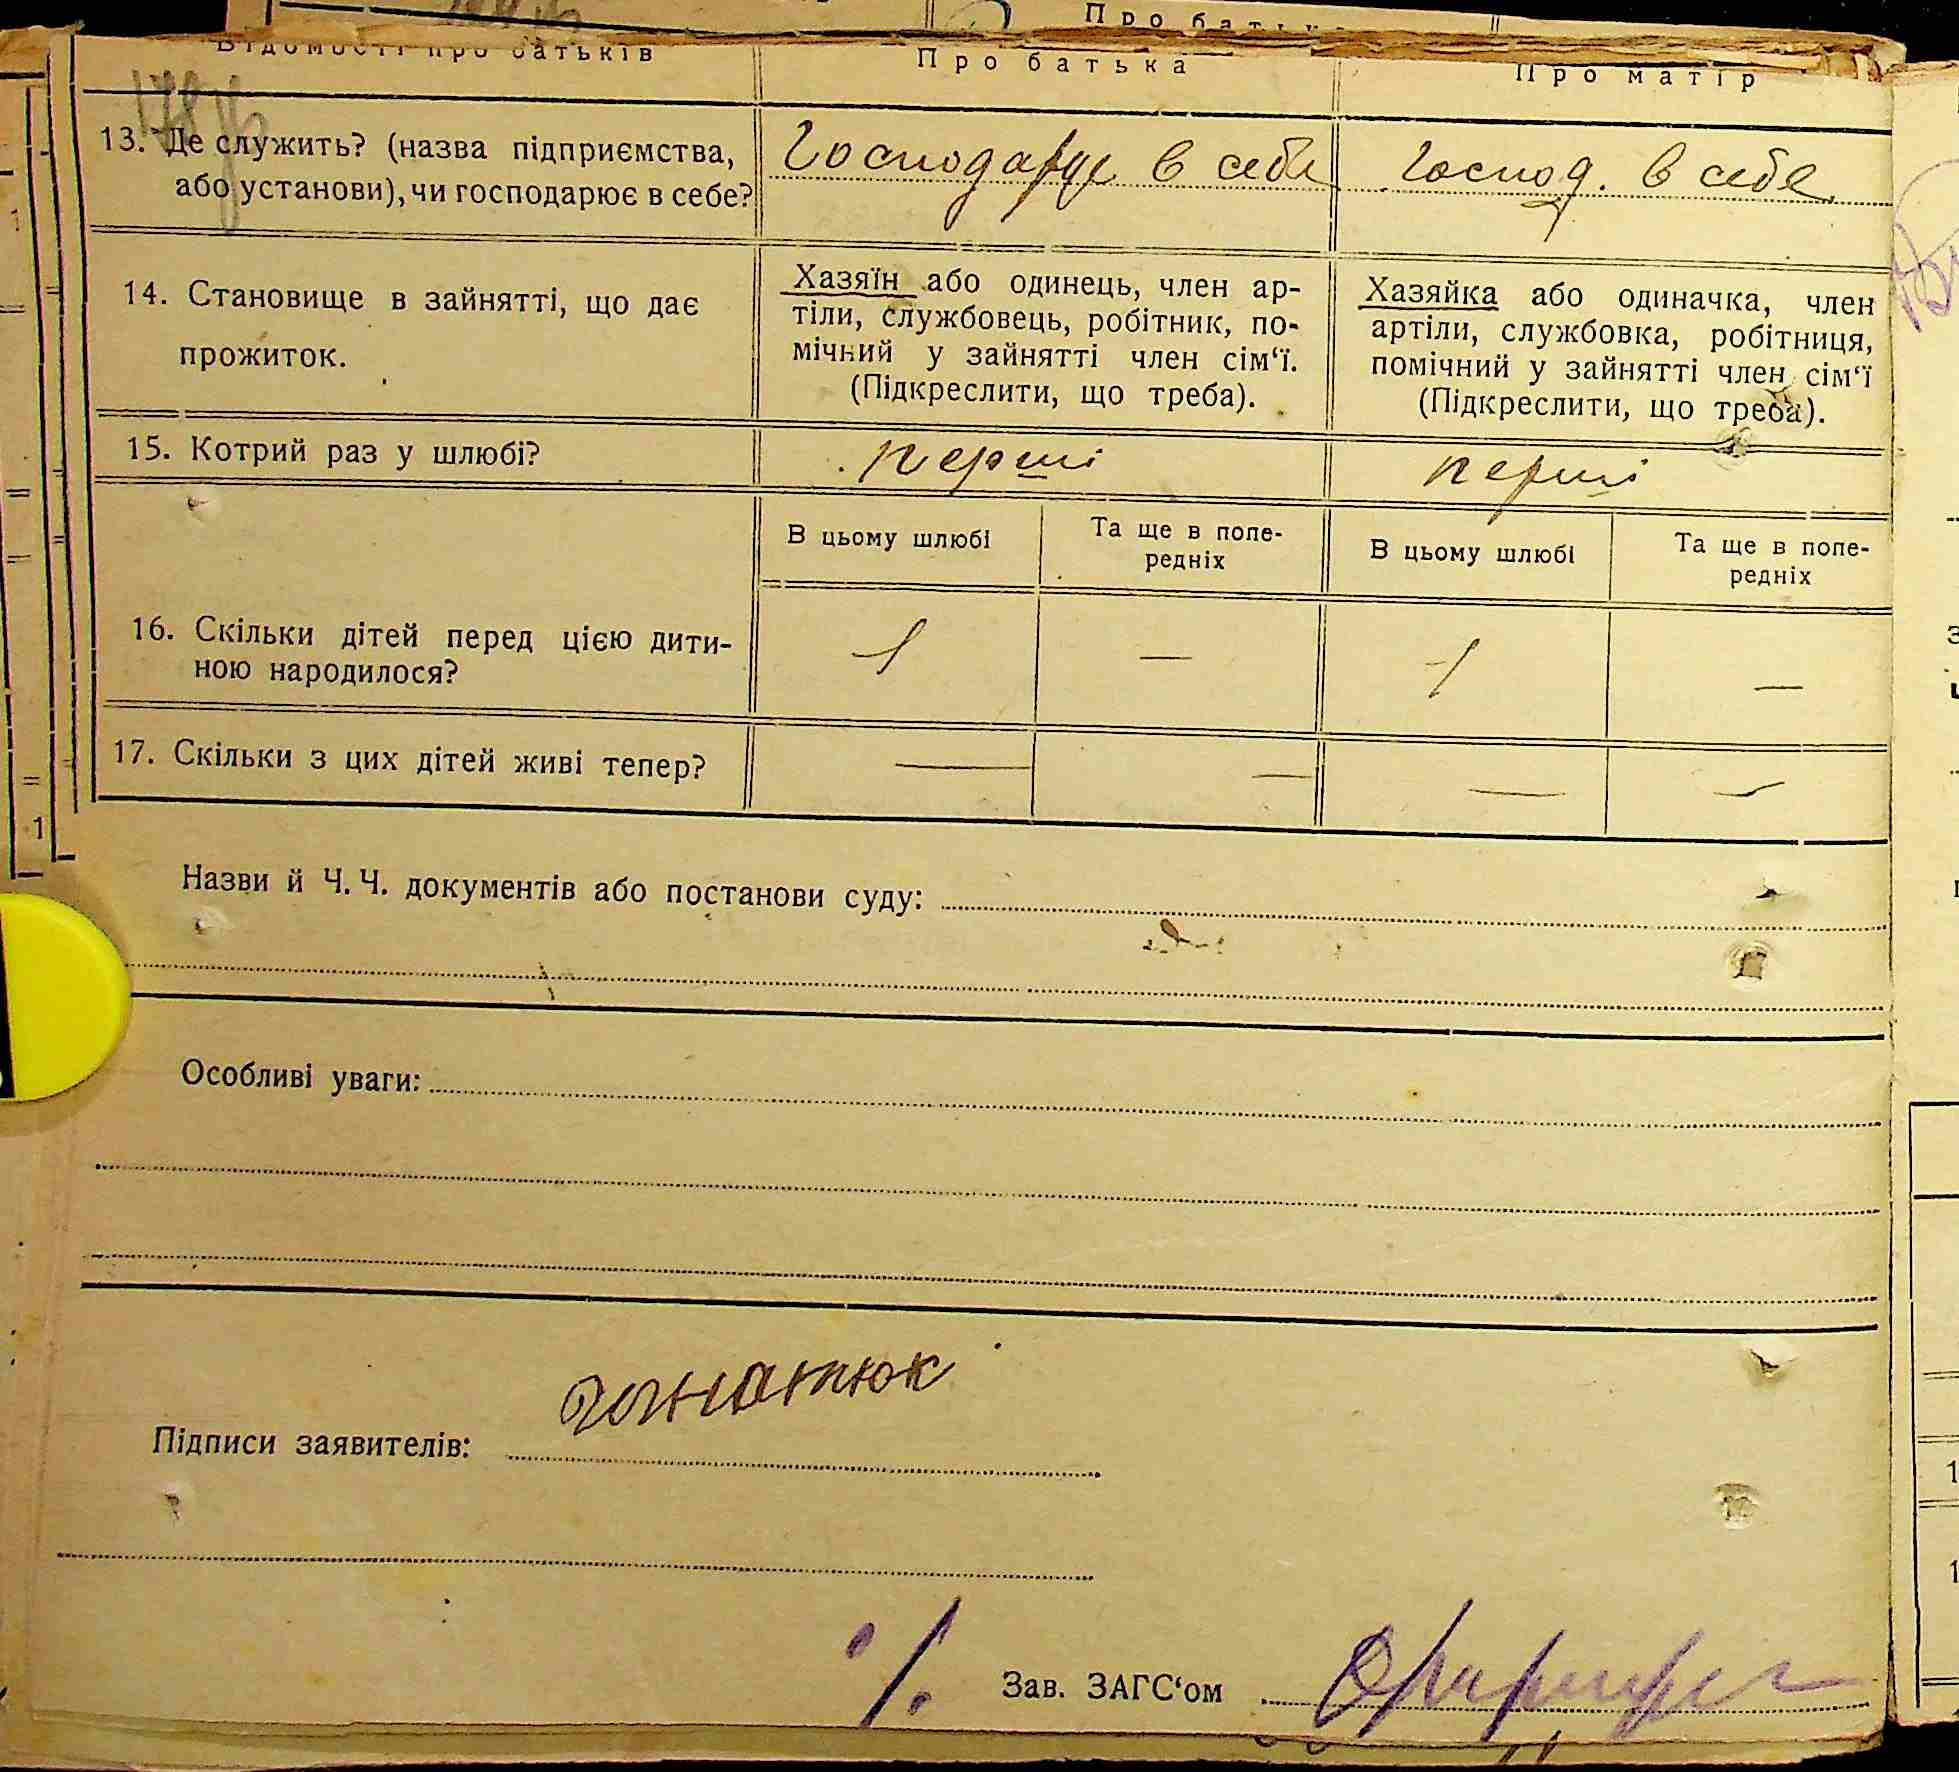 Про батька
Відомості про батьків Про батька Про матір
13. Де служить? (назва підприємства, або установи), чи господарює в себе? Господарює в себе Господ. в себе
14. Становище в зайнятті, що дає прожиток.
Хазяїн або одинець, член ар-
тіли, службовець, робітник, по-
мічний у зайнятті член сім‘ї.
(Підкреслити, що треба).
Хазяйка або одиначка, член
артіли, службовка, робітниця,
помічний у зайнятті член сім‘ї
(Підкреслити, що треба).
15. Котрий раз у шлюбі? перші перші
В цьому шлюбі
Та ще в попе-
редніх
В цьому шлюбі
Та ще в попе-
редніх
16. Скільки дітей перед цією дити-
ною народилося? 1 — 1 —
17. Скільки з цих дітей живі тепер? — — — —
Назви й Ч. Ч. документів або постанови суду:
Особливі уваги:
Підписи заявителів:
Зав. ЗАГС‘ом